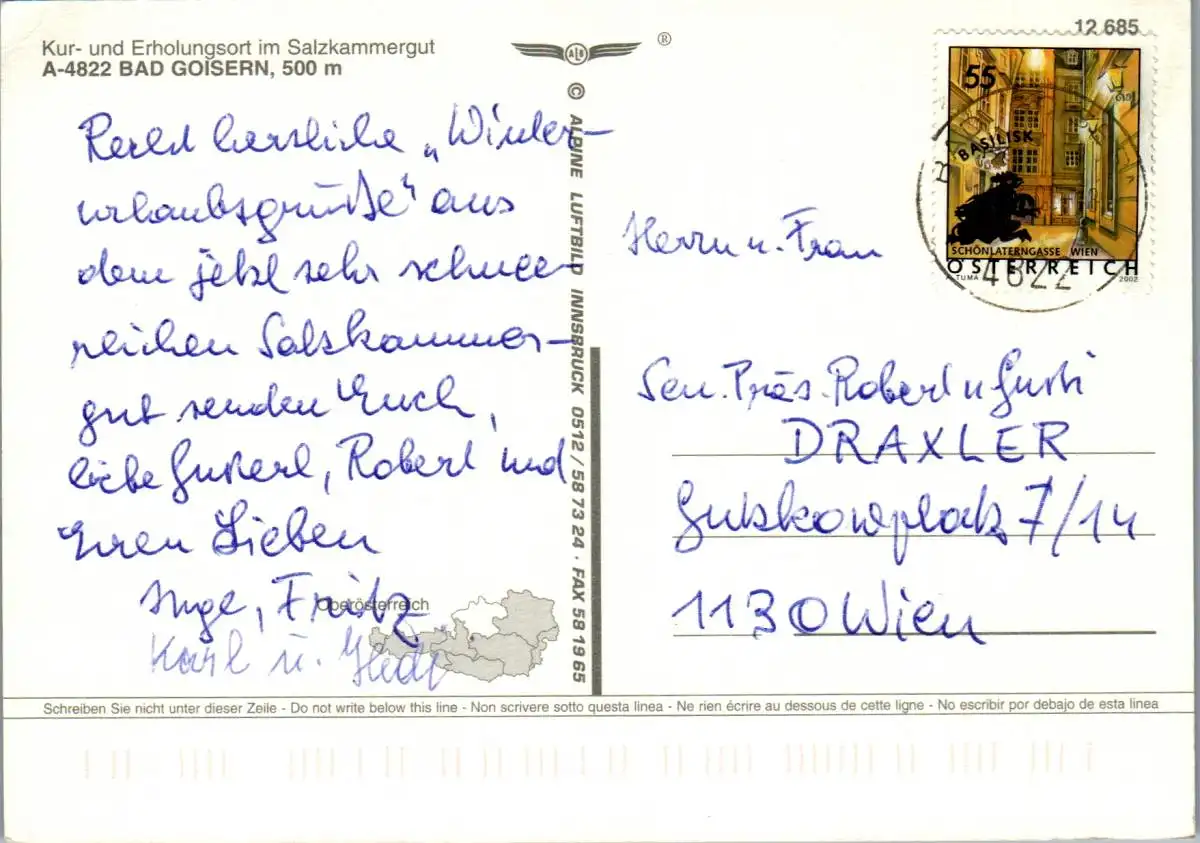 Kur- und Erholungsort im Salzkammergut
A-4822 BAD GOISERN, 500 m
ALB
®
12 685
Recht herzliche „Winter-
urlaubsgrüße" aus
dem jetzt sehr schnee-
reichen Salzkammer-
gut senden Euch,
liebe Gusterl, Robert und
Euren Lieben
Inge, Fritz
Karl u. Hedi
Oberösterreich
© ALPINE LUFTBILD INNSBRUCK 0512 / 58 73 24 · FAX 58 19 65
55
BASILISK
SCHÖNLATERNGASSE WIEN
ÖSTERREICH
TUMA 2002
4822
Herrn u. Frau
Sen. Präs. Robert u Gusti
DRAXLER
Gutzkowplatz 7/14
1130 Wien
Schreiben Sie nicht unter dieser Zeile - Do not write below this line - Non scrivere sotto questa linea - Ne rien écrire au dessous de cette ligne - No escribir por debajo de esta linea